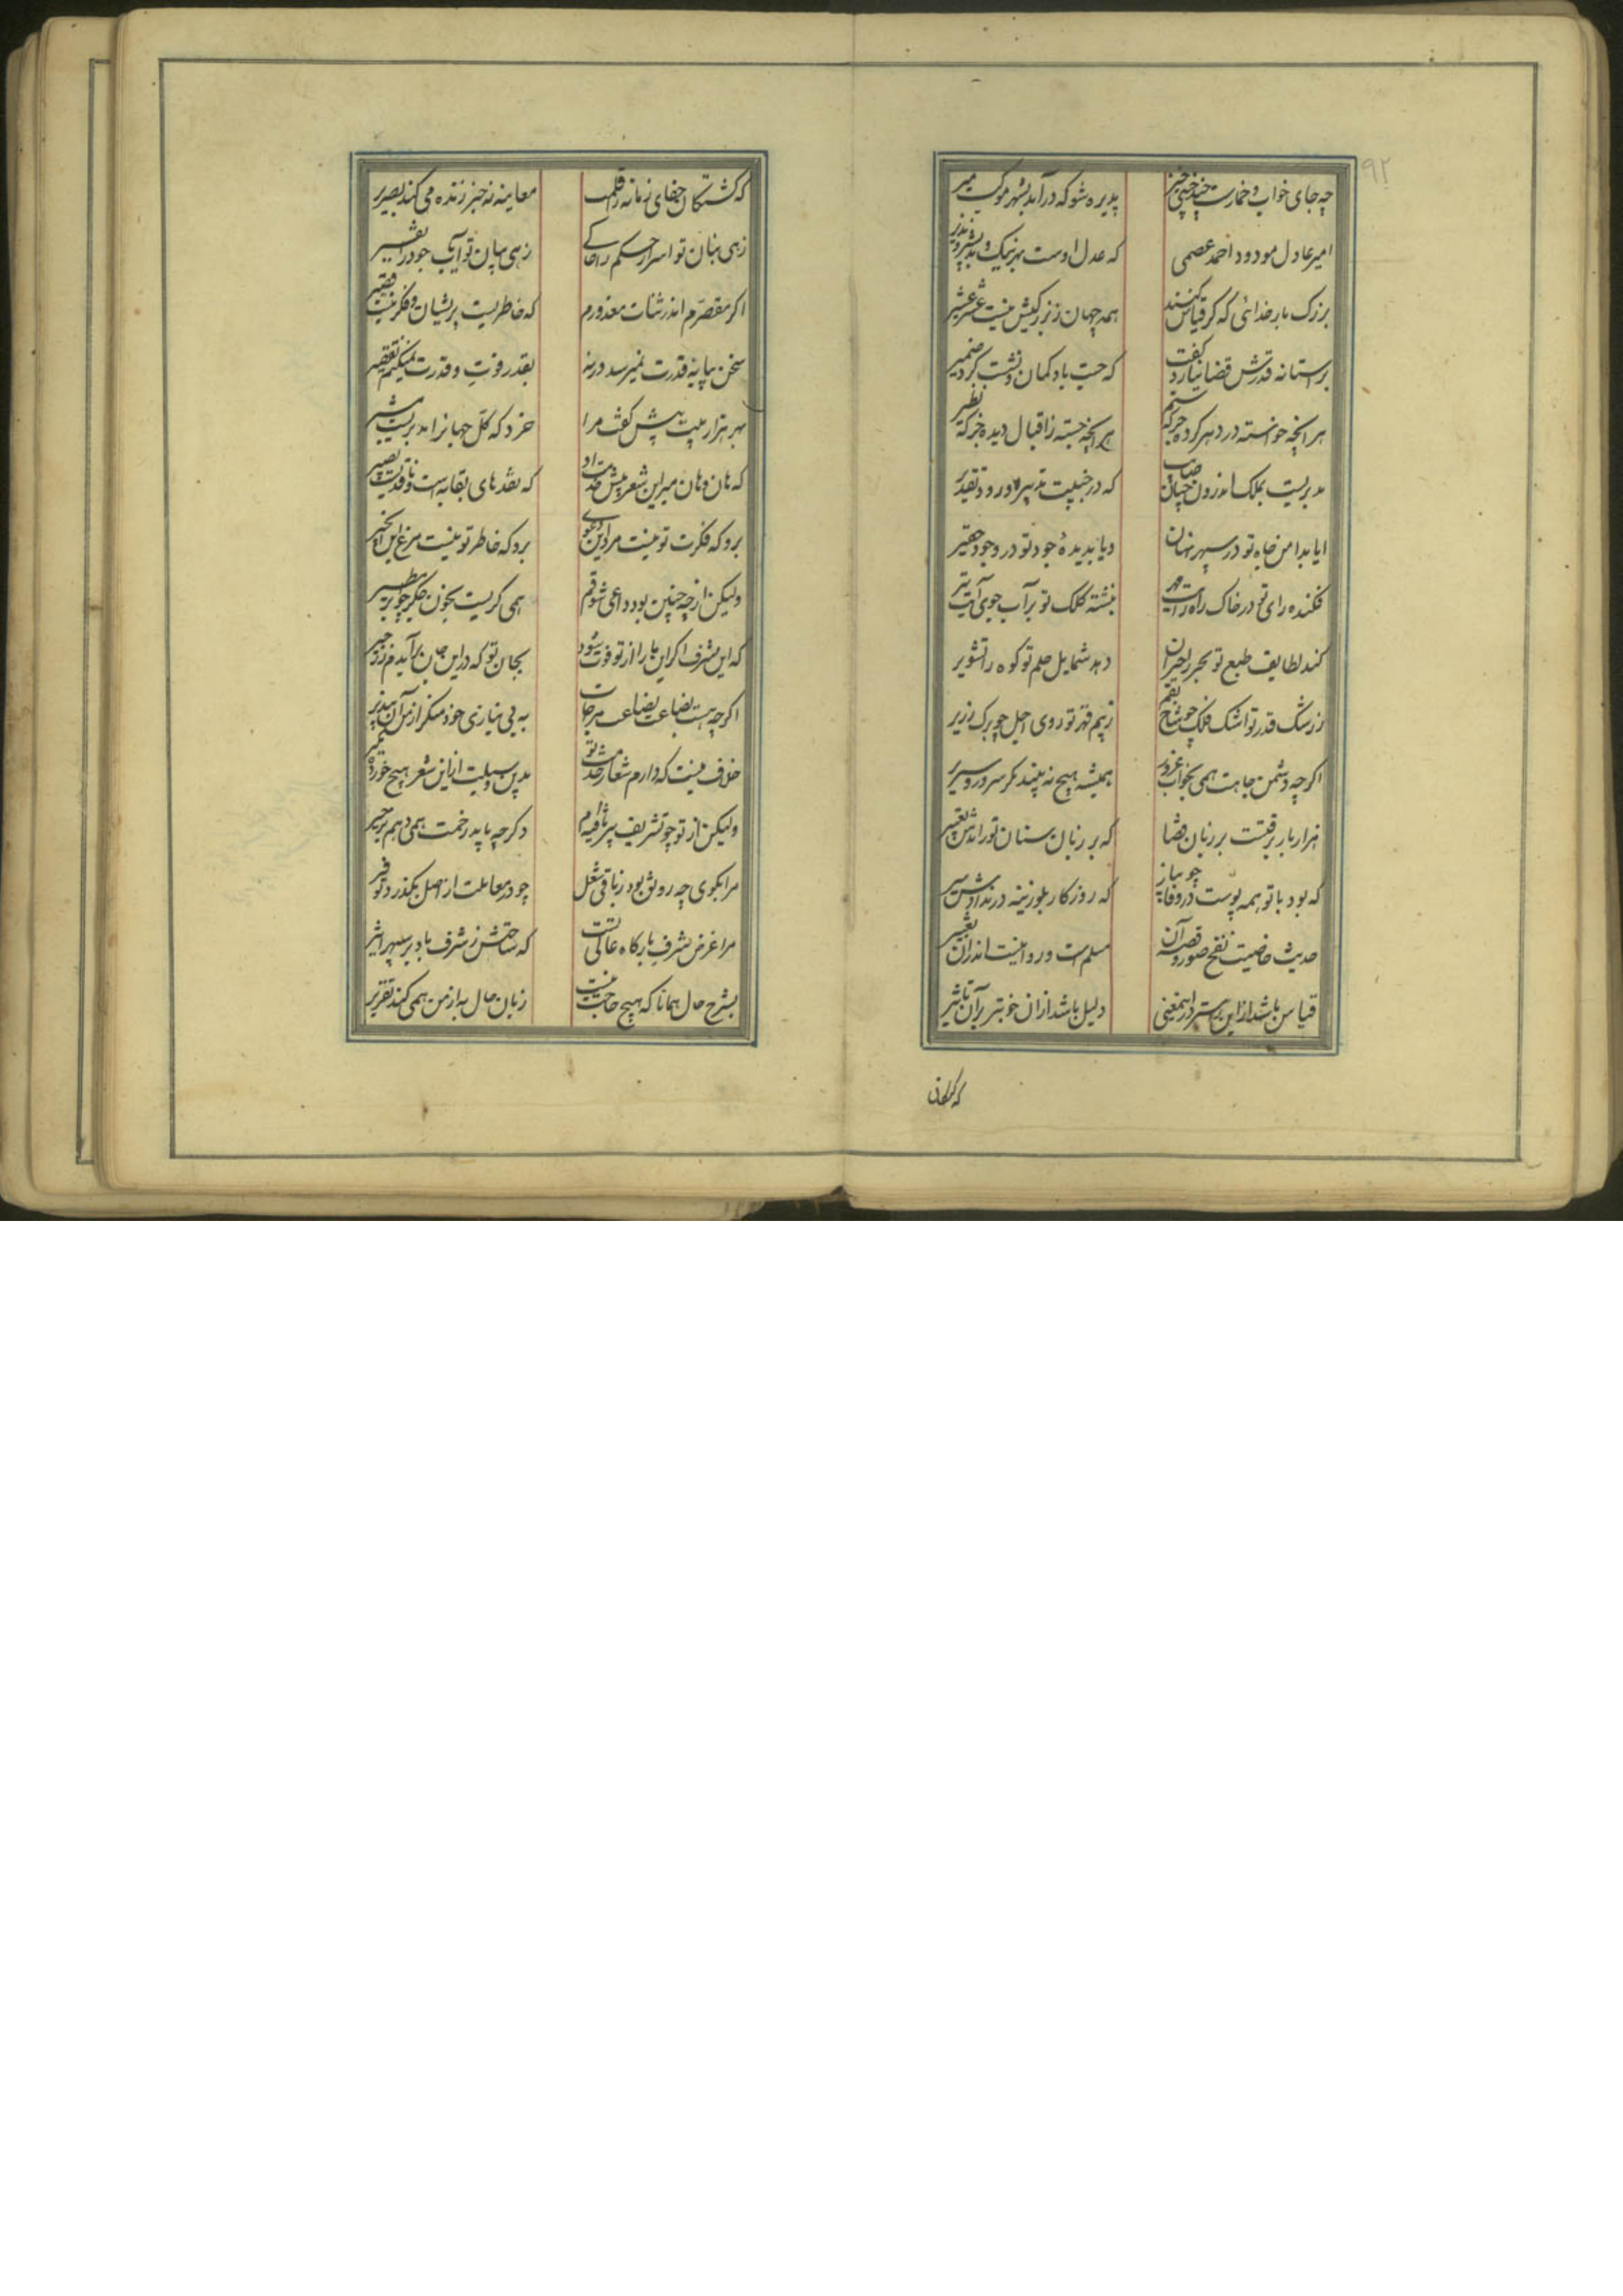 ۹۲
چه جای خواب و خمارست خیز خیز پذیره شو که درآمد بشهر موکب میر
امیر عادل مودود احمد عصمی که عدل اوست بهر نیک و بد بشیر و نذیر
بزرگ بارخدائی که گر قیاس کنند همه جهان ز بزرگیش نیست عشر عشیر
بر آستانه قدرتش قضا نیارد گفت که جست باد کمان و نشست گرد ضمیر
هر آنچه خواسته در دهر کرده جز که ستم هر آنچه جسته ز اقبال دیده جز که نظیر
مدبریست بملک اندرون چنان صایب که در جنیبت تدبیر او رود تقدیر
ایا بدامن جاه تو در سپهر نهان و یا بدیده جود تو در وجود حقیر
فکنده رای تو در خاک راه رایت مهر نبشته کلک تو بر آب جوی آیت تیر
کند لطایف طبع تو بحر را حیران دهد شمایل حلم تو کوه را تشویر
ز رشک قدر تو اشک فلک چو شاخ بقم ز بیم قهر تو روی اجل چو برگ زریر
اگرچه دشمن جاهت همی بخواب غرور همیشه هیچ نه بیند مگر سرور و سریر
هزار بار برفتست بر زبان قضا که بر زبان سنان تو راندش تعبیر
که بود با تو همه پوست در وفا چو پیاز که روزگار بلوزینه در ندادش سیر
حدیث خاصیت نفخ صور و قصه آن مسلم است و روا نیست اندران تغییر
قیاس باشد از این راستر در اینمعنی دلیل باشد از ان خوبتر بر آن تاثیر
که کشتگان جفای زمانه را قلمت معاینه نه خبر زنده می کند بصریر
زهی بنان تو اسرار حکم را حاکی زهی بیان تو آیات جود را تفسیر
اگر مقصرم اندر ثنات معذورم که خاطریست پریشان و فکرتیست فقیر
سخن بپایه قدرت نمیرسد ورنه بقدر وقت و قدرت نمیکنم تقصیر
بهر هزار بیت پیش گفت مرا خرد که کل جهانرا مدبریست مشیر
که هان و هان مبر این شعر پیش خدمت او که نقدهای بقابه است و ناقدیست بصیر
برو که فکرت تو نیست مرد این دعوی برو که خاطر تو نیست مرغ این انجیر
ولیکن ار چه چنین بود داعی شوقم همی گریست بخون جگر چو ابر مطیر
که این شرف اگر این بار را ز تو فوت شود بجان تو که در این جان برآیدم ز زحیر
اگرچه هست بضاعت بضاعت مزجات به بی نیازی خود منگر از من آن بپذیر
خلاف نیست که دارم شعار خدمت تو بدین وسیلت از این شعر هیچ خورده مگیر
ولیکن از تو چو تشریف پیر یافته ام وگرچه باید رخصت همی دهم بر خیر
مرا بگوی چه رونق بود ز باقی شغل چو در معاملت از اصل بگذرد توفیر
مرا غرض شرف بارگاه عالی تست که ساحتش ز شرف باد بر سپهر اثیر
بشرح حال همانا که هیچ حاجت نیست زبان حال به از من همی کند تقریر
که کشتگان